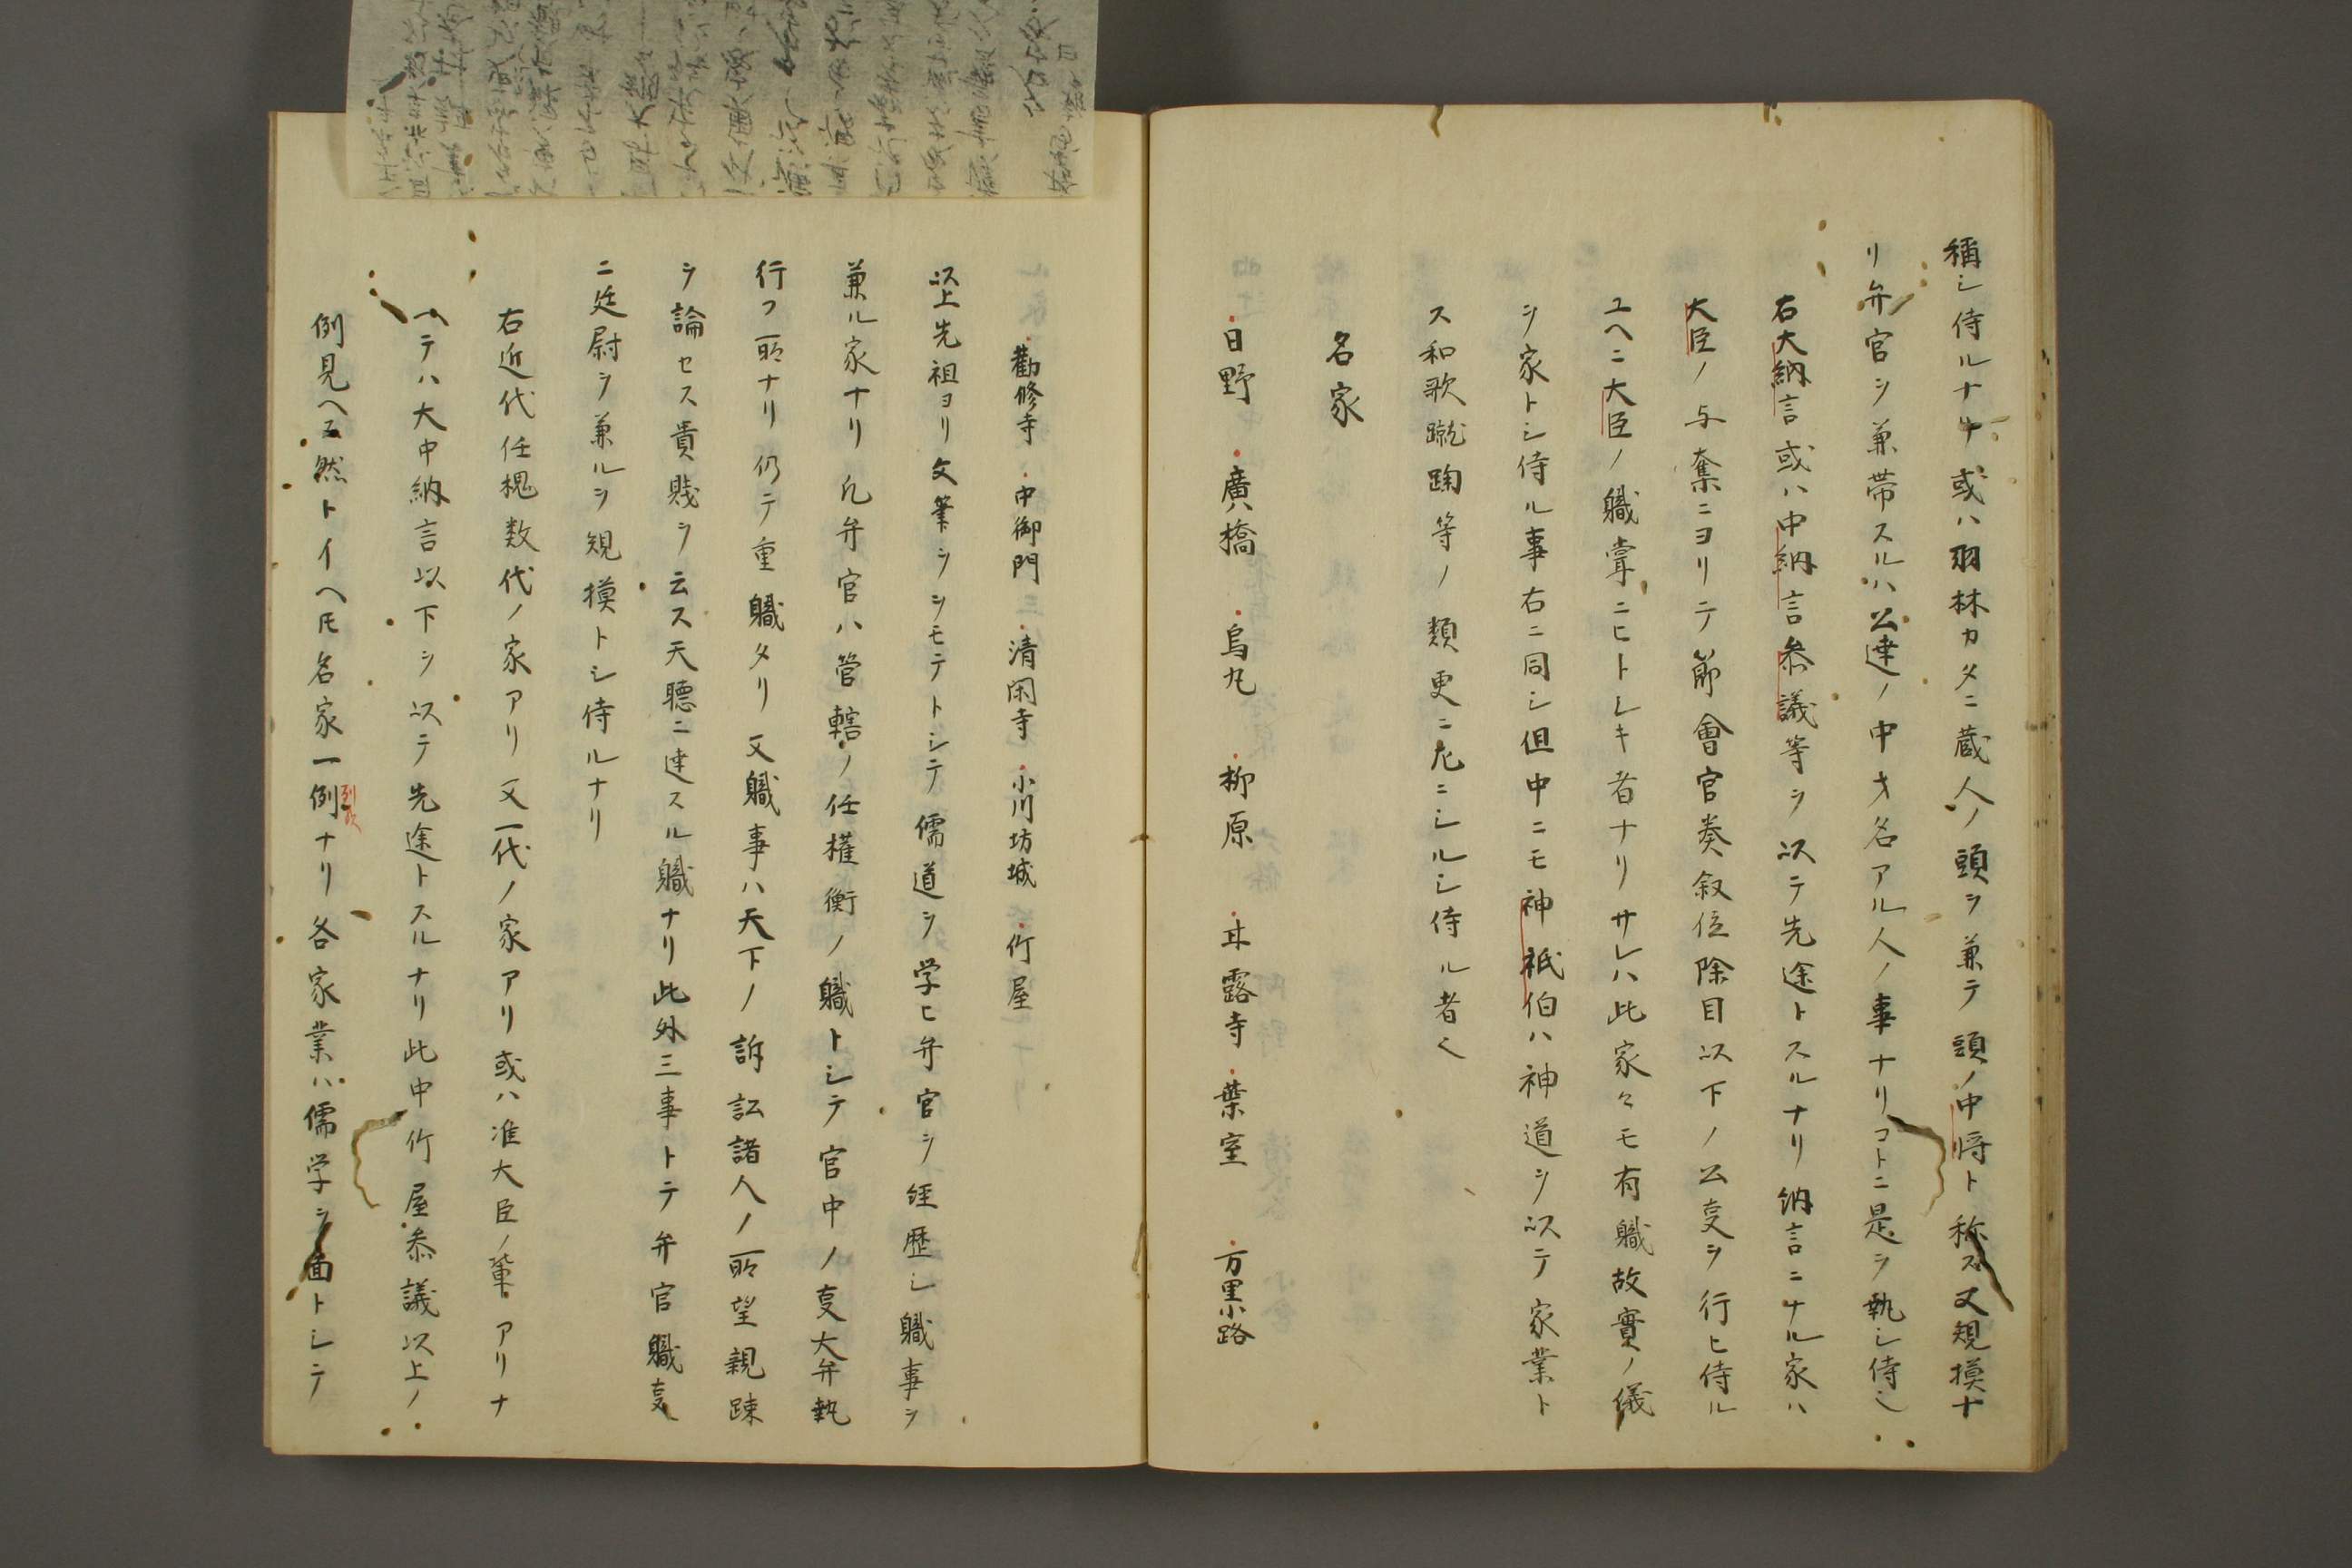 稱シ侍ルナリ或ハ羽林カタニ蔵人ノ頭ヲ兼テ頭ノ中将ト称ス又規摸ナ
リ弁官ヲ兼帯スルハ公達ノ中才名アル人ノ事ナリコトニ是ヲ執シ侍ル
右大納言或ハ中納言叅議等ヲ以テ先途トスルナリ納言ニナル家ハ
大臣ノ与奪ニヨリテ節會官奏叙位除目以下ノ公叓ヲ行ヒ侍ル
ユヘニ大臣ノ軄掌ニヒトシキ者ナリサレハ此家々モ有軄故實ノ儀
ヲ家トシ侍ル事右ニ同シ但中ニモ神祇伯ハ神道ヲ以テ家業ト
ス和歌蹴踘等ノ類更ニ尤ニシルシ侍ル者也
名家
日野 廣橋 烏丸 柳原 甘露寺 葉室 万里小路
勸修寺 中御門 清閑寺 小川坊城 竹屋
以上先祖ヨリ文筆ヲシモテトシテ儒道ヲ学ヒ弁官ヲ経歴シ軄事ヲ
兼ル家ナリ凡弁官ハ管轄ノ任権衡ノ軄トシテ官中ノ叓大弁執
行フ所ナリ仍テ重軄タリ又軄事ハ天下ノ訴訟諸人ノ所望親踈
ヲ論セス貴賎ヲ云ス天聴ニ達スル軄ナリ此外三事トテ弁官軄叓
ニ廷尉ヲ兼ルヲ規摸トシ侍ルナリ
右近代任槐数代ノ家アリ又一代ノ家アリ或ハ准大臣ノ輩アリナ
ヘテハ大中納言以下ヲ以テ先途トスルナリ此中竹屋叅議以上ノ
例見ヘス然トイヘ𪜈名家一例ナリ各家業ハ儒学ヲ面トシテ
列歟